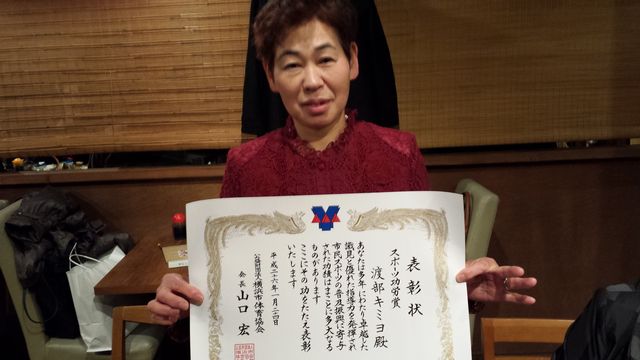 表彰状
スポーツ功労賞
渡部キミヨ殿
あなたは多年にわたり卓越した
識見と優れた指導力を発揮され
市民スポーツの普及振興に寄与
された功績はまことに多大なる
ものがあります
ここにその功をたたえ表彰
いたします
平成二十六年一月二十四日
公益財団法人横浜市体育協会
会長 山口 宏